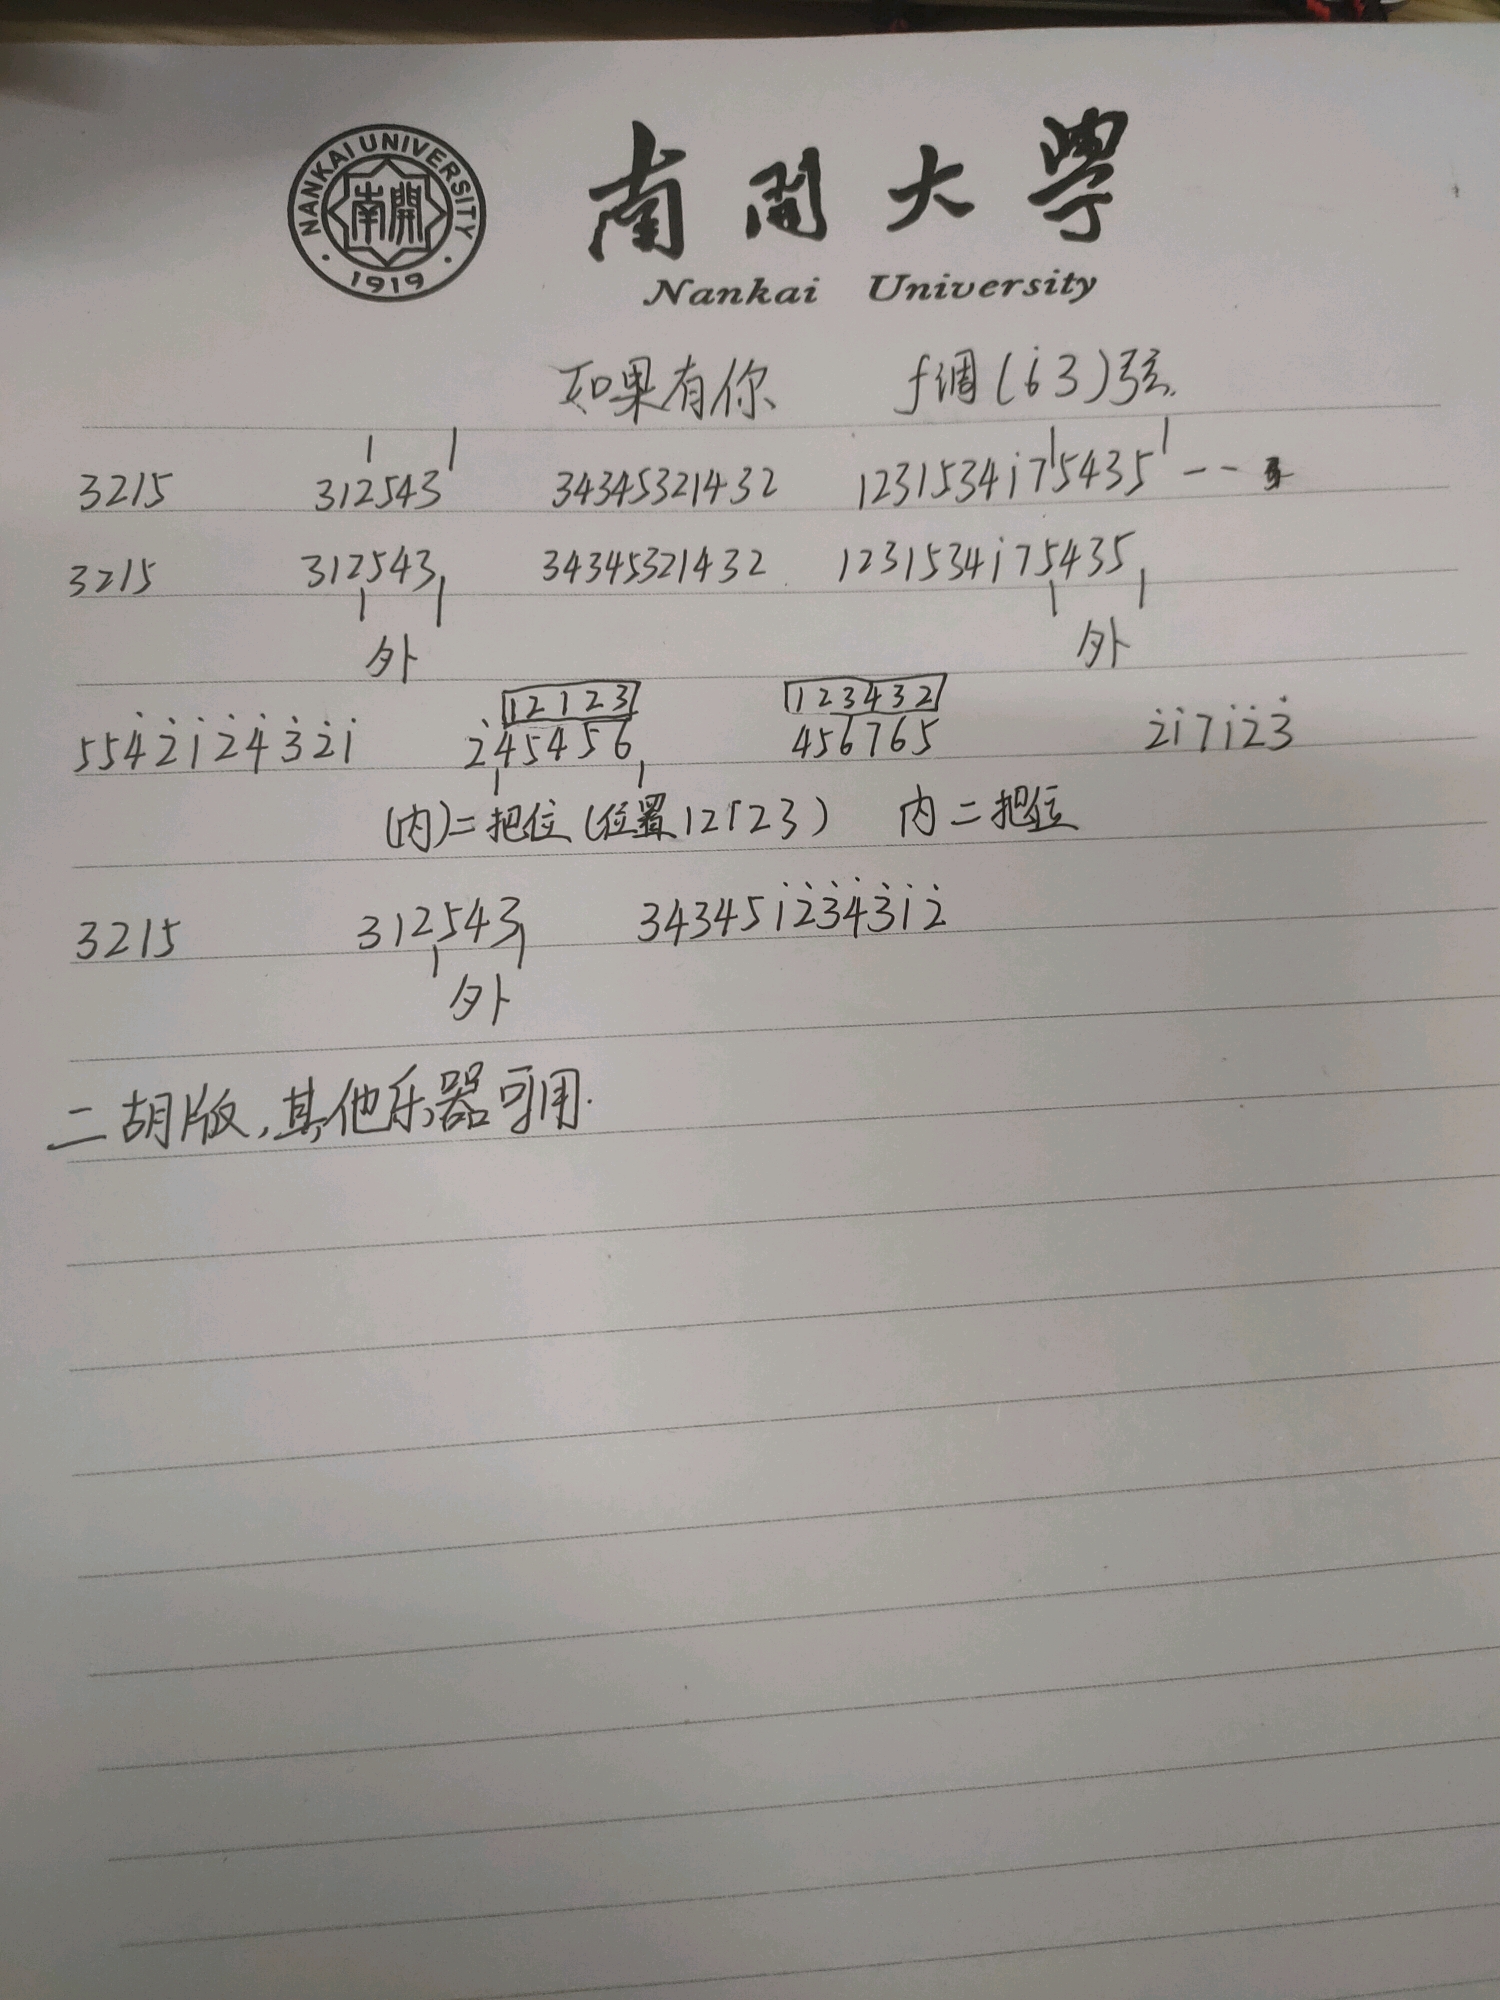 NANKAI UNIVERSITY
南開
· 1919 ·
南开大学
Nankai University
如果有你 f调(i̇3)弦.
3215 312543 34345321432 1231534i̇75435 --
3215 312543 34345321432 1231534i̇75435
外 外
12123 123432
5542̇i̇2̇4̇3̇2̇i̇ 2̇45456 456765 2̇i̇7i̇2̇3̇
(内)二把位(位置12123) 内二把位
3215 312543 34345i̇2̇3̇4̇3̇i̇2̇
外
二胡版,其他乐器可用.